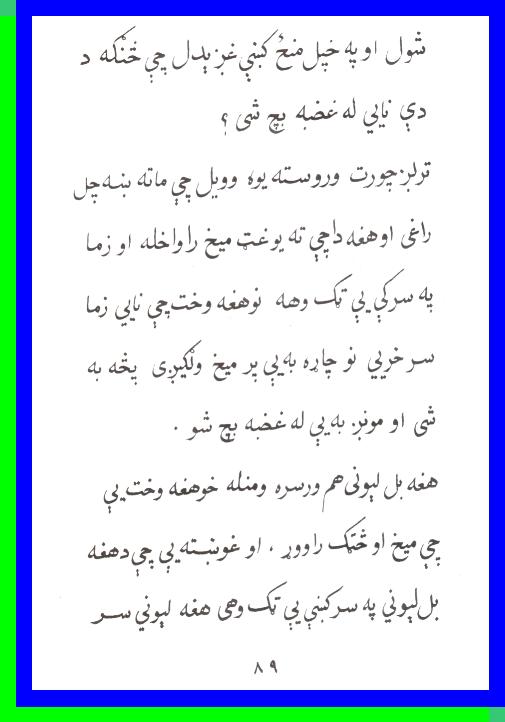 شول او په خپل منځ کښې غږېدل چې څنګه د
دې نايي له غضبه بچ شی ؟
ترلږ جورت وروسته يوه وويل چې ماته ښه چل
راغی او هغه داچې ته يو غټ ميخ راواخله او زما
په سرکې يې ټک وهه نو هغه وخت چې نايي زما
سر خريي نو چاړه به يې پر ميخ ولګيږی پڅه به
شی او مونږ به يې له غضبه بچ شو .
هغه بل ليونی هم ورسره ومنله خو هغه وخت يې
چې ميخ او څټک راووړ . او غوښته يې چې د هغه
بل ليوني په سرکښې يې ټک وهی هغه ليوني سر
۸۹